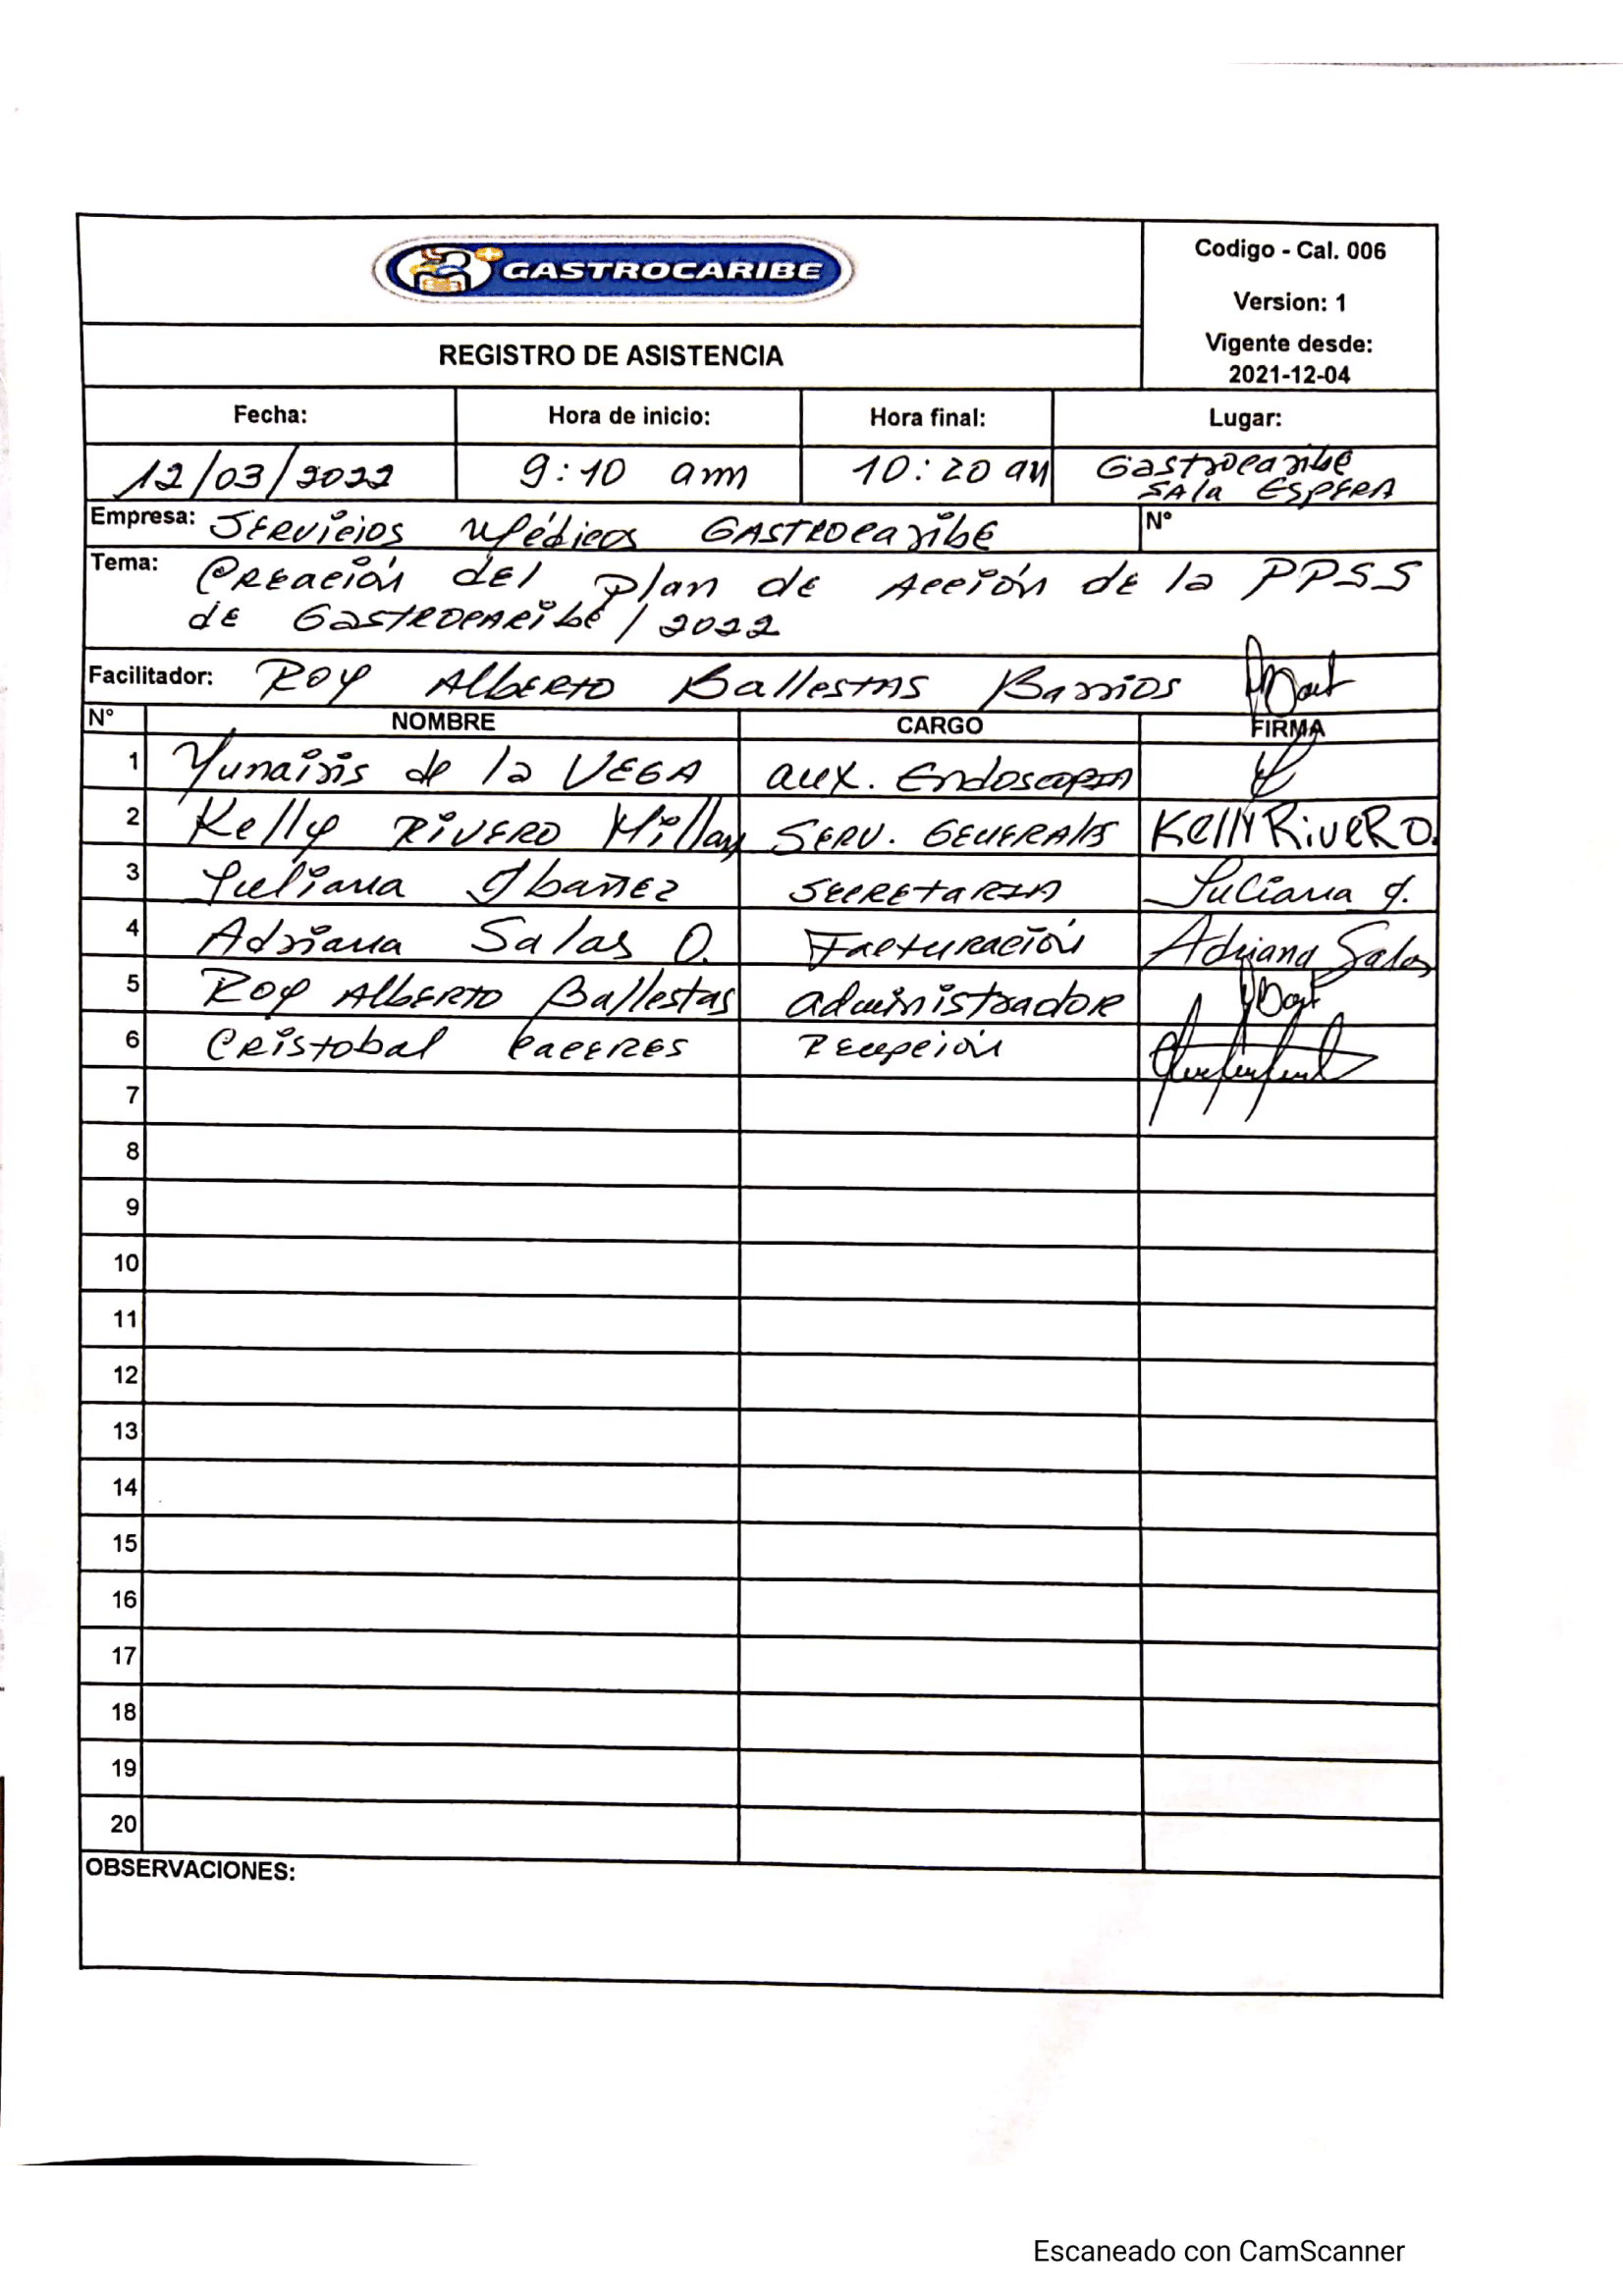 GASTROCARIBE
Codigo - Cal. 006
Version: 1
Vigente desde:
2021-12-04
REGISTRO DE ASISTENCIA
Fecha: Hora de inicio: Hora final: Lugar:
12/03/2022 9:10 am 10:20 am Gastrocaribe
Sala Espera
Empresa: Servicios Médicos Gastrocaribe N°
Tema: Creación del plan de Acción de la PPSS
de Gastrocaribe / 2022
Facilitador: Roy Alberto Ballestas Barrios
N° NOMBRE CARGO FIRMA
1 Yunairis de la Vega aux. Endoscopia
2 Kelly Rivero Millan Serv. Generales Kelly Rivero.
3 Juliana Ibañez Secretaria Juliana I.
4 Adriana Salas O. Facturación Adriana Salas
5 Roy Alberto Ballestas administrador
6 Cristobal Caceres Recepción
7
8
9
10
11
12
13
14
15
16
17
18
19
20
OBSERVACIONES:
Escaneado con CamScanner